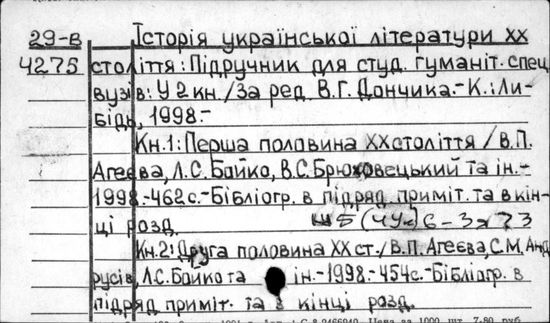 29-В Історія української літератури XX
4275 століття: Підручник для студ. гуманіт. спец
вузів: У 2 кн. / За ред. В.Г. Дончика.- К.: Ли-
бідь, 1998.-
Кн.1: Перша половина XX століття / В.П.
Агеєва, Л.С. Бойко, В.С. Брюховецький та ін.-
1998.- 462с.- Бібліогр. в підряд. приміт. та в кін-
ці розд. Ш5(4Ук)6-3я73
Кн.2: Друга половина XX ст. / В.П. Агеєва, С.М. Анд
русів, Л.С. Бойко та ін.- 1998.- 454с.- Бібліогр. в
підряд приміт. та в кінці розд.
Цена за 1000 шт. 7-80 руб.